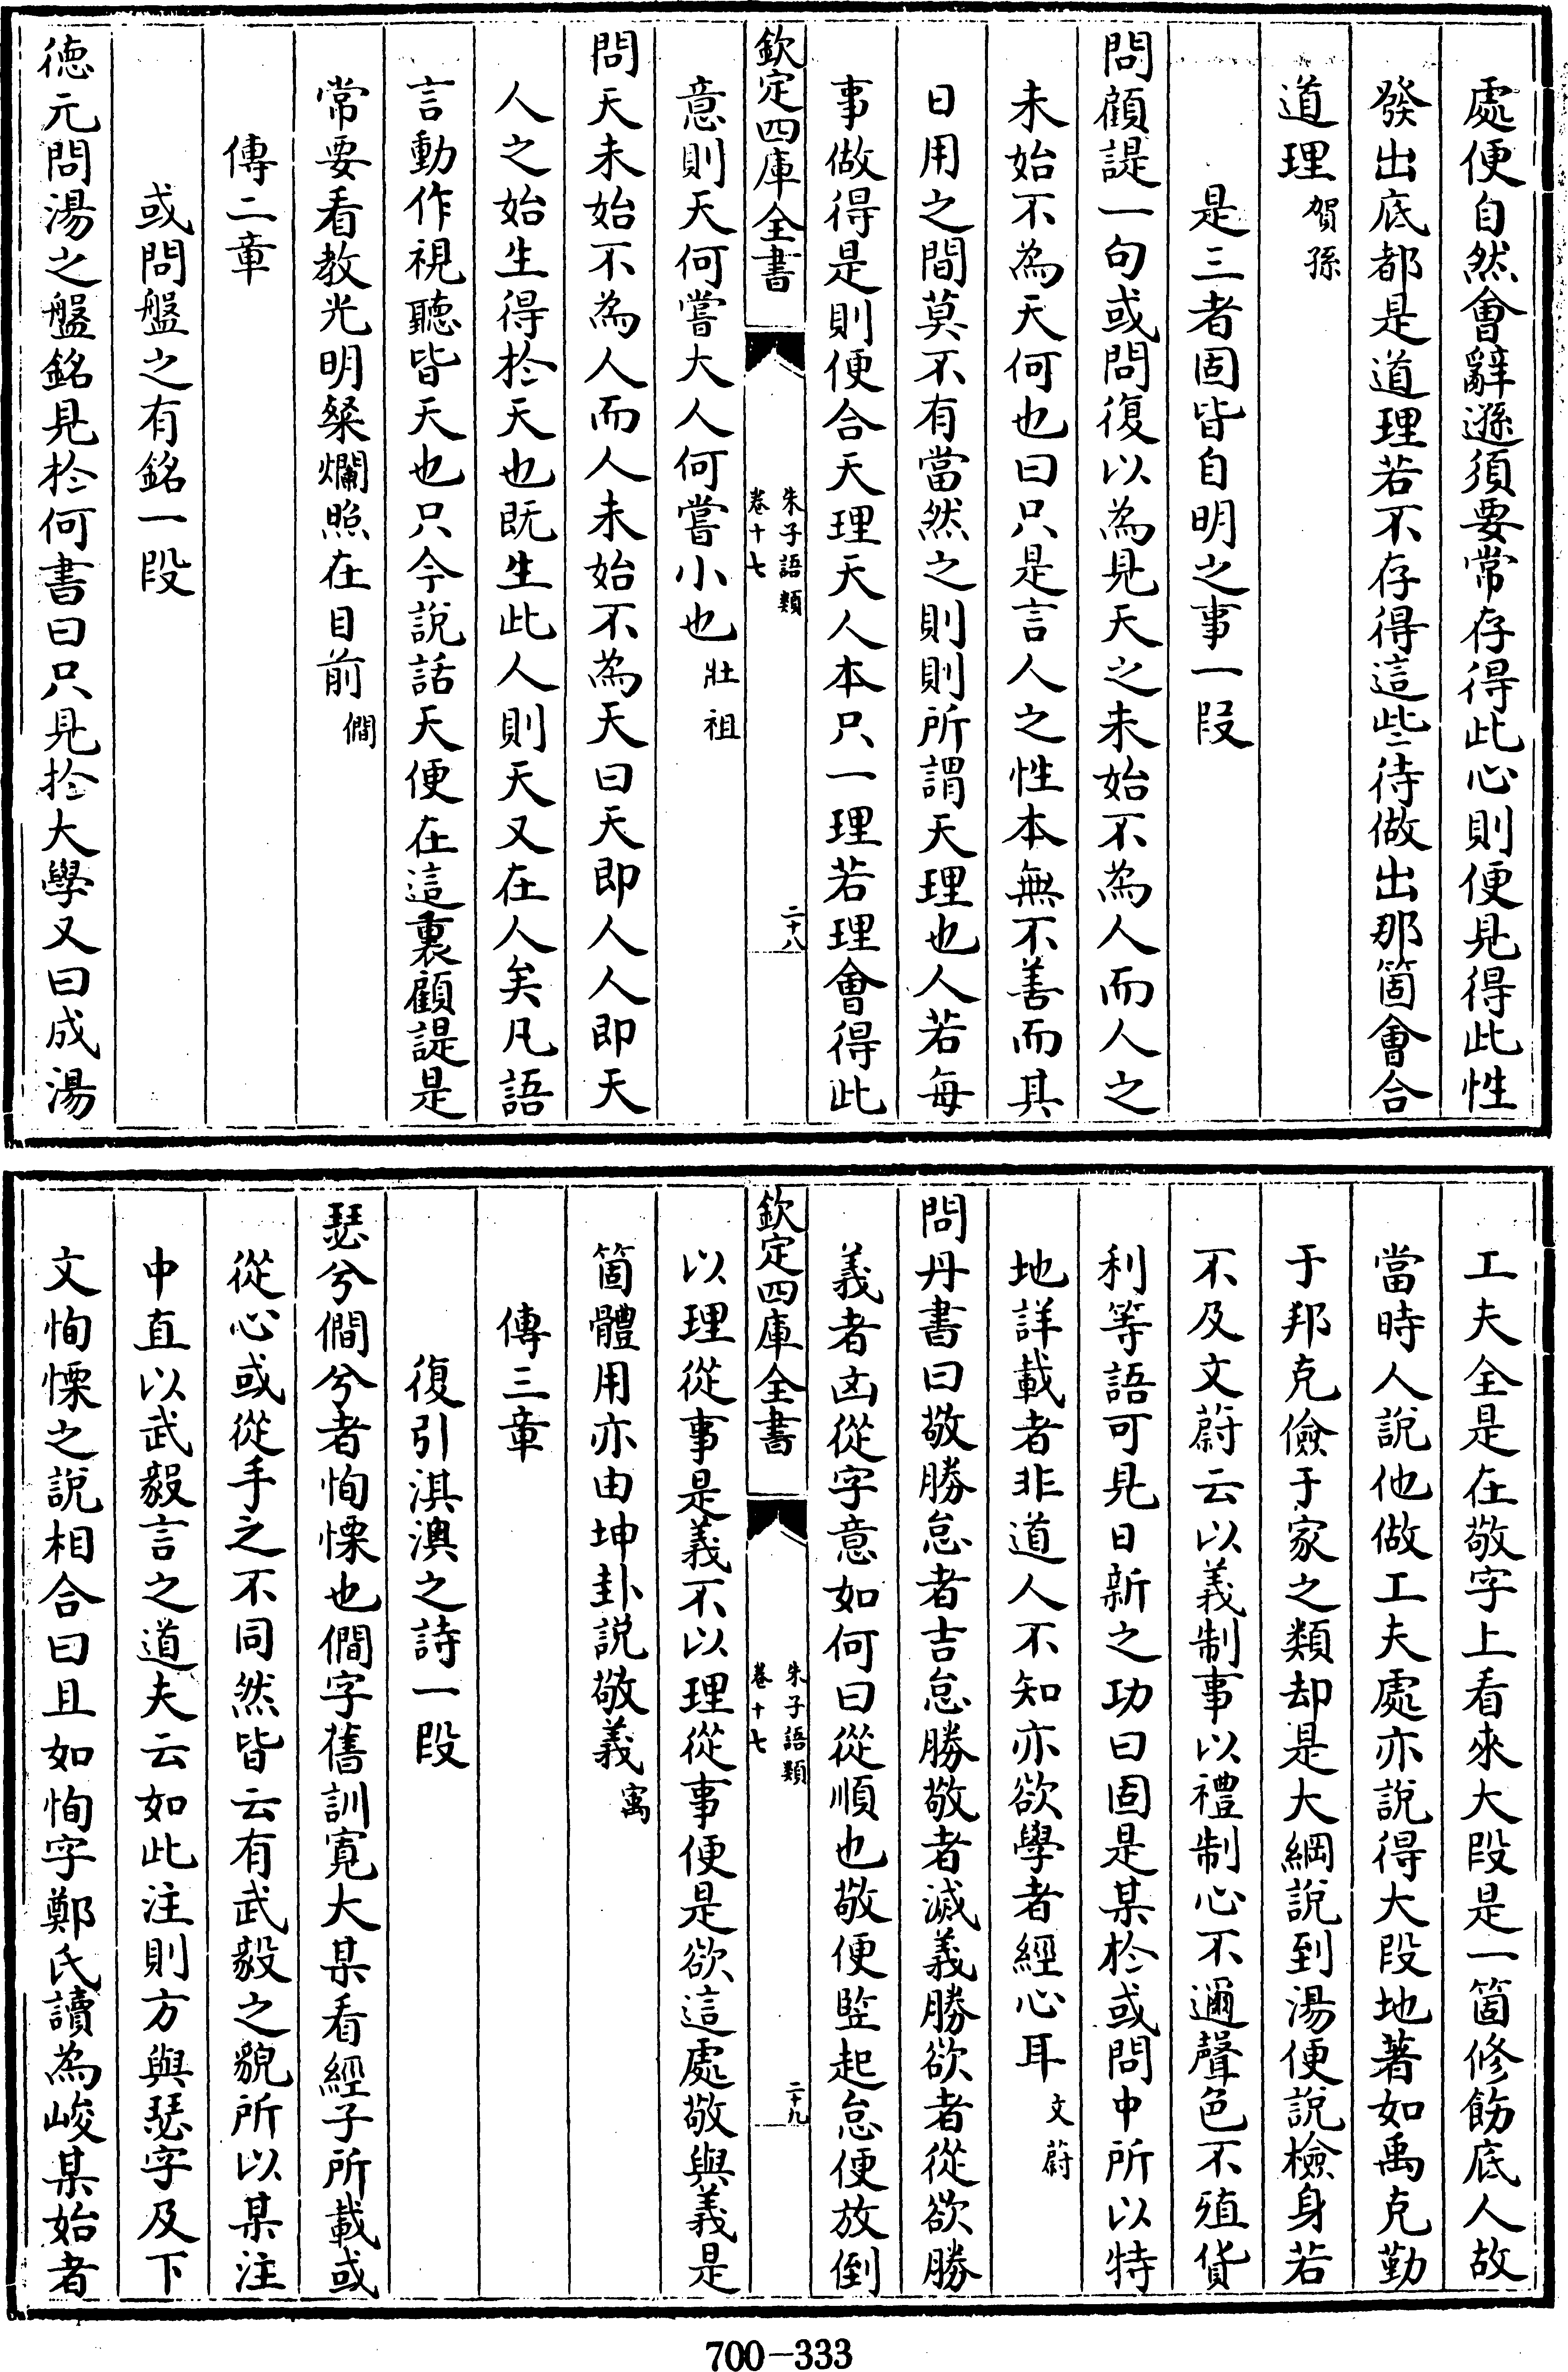 處便自然會辭遜須要常存得此心則便見得此性
發出底都是道理若不存得這些待做出那箇會合
道理賀孫
是三者固皆自明之事一段
問顧諟一句或問復以為見天之未始不為人而人之
未始不為天何也曰只是言人之性本無不善而其
日用之間莫不有當然之則則所謂天理也人若每
事做得是則便合天理天人本只一理若理會得此
欽定四庫全書
朱子語類
卷十七
二十八
意則天何嘗大人何嘗小也壯祖
問天未始不為人而人未始不為天曰天即人人即天
人之始生得於天也既生此人則天又在人矣凡語
言動作視聽皆天也只今說話天便在這裏顧諟是
常要看教光明粲爛照在目前僩
傳二章
或問盤之有銘一段
徳元問湯之盤銘見於何書曰只見於大學又曰成湯
工夫全是在敬字上看來大段是一箇修飭底人故
當時人說他做工夫處亦說得大段地著如禹克勤
于邦克儉于家之類却是大綱說到湯便說檢身若
不及文蔚云以義制事以禮制心不邇聲色不殖貨
利等語可見日新之功曰固是某於或問中所以特
地詳載者非道人不知亦欲學者經心耳文蔚
問丹書曰敬勝怠者吉怠勝敬者滅義勝欲者從欲勝
義者凶從字意如何曰從順也敬便竪起怠便放倒
欽定四庫全書
朱子語類
卷十七
二十九
以理從事是義不以理從事便是欲這處敬與義是
箇體用亦由坤卦說敬義㝢
傳三章
復引淇澳之詩一段
瑟兮僩兮者恂慄也僩字舊訓寛大某看經子所載或
從心或從手之不同然皆云有武毅之貌所以某注
中直以武毅言之道夫云如此注則方與瑟字及下
文恂慄之說相合曰且如恂字鄭氏讀為峻某始者
700-333